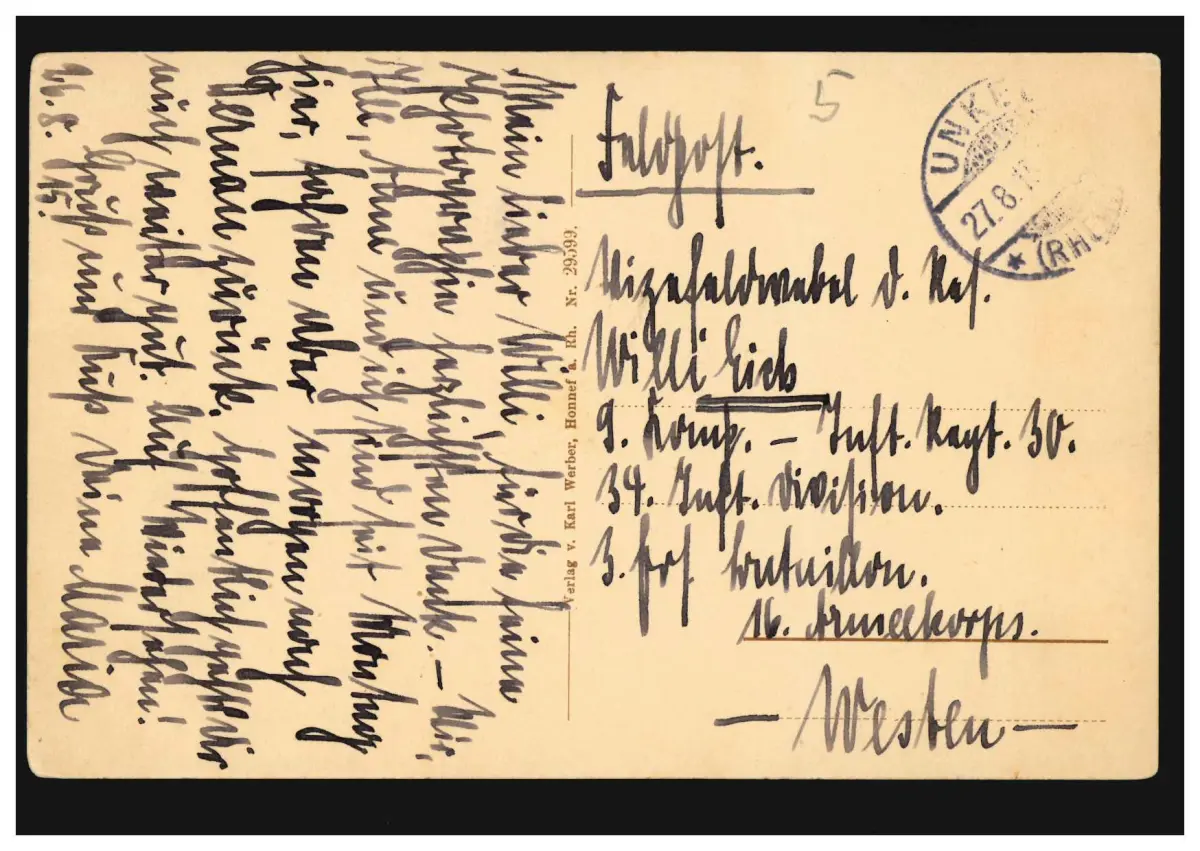 Mein lieber Willi, für die feine
Photographie herzlichsten Dank. – Wir,
Elli, Hans und ich sind seit Montag
hier, fahren aber morgen nach
zurück. Hoffentlich geht es Dir
auch weiter gut. Auf Wiedersehen!
Gruß und Kuß Deine Maria
26.8.15.
Verlag v. Karl Werber, Honnef a. Rh. Nr. 29599.
5
Feldpost.
UNKEL
27.8.15
* (RHEIN)
Vizefeldwebel d. Res.
Willi Eich
9. Komp. – Inft. Regt. 30.
34. Inft. Division.
3. Ers. Bataillon.
16. Armeekorps.
– Westen –